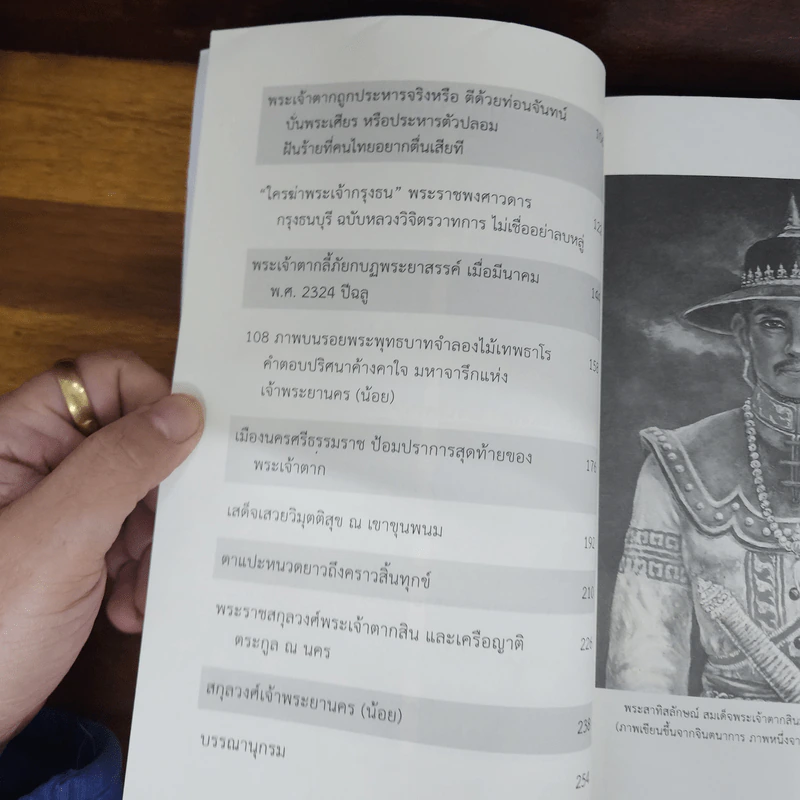 พระเจ้าตากถูกประหารจริงหรือ ตีด้วยท่อนจันทน์
บั่นพระเศียร หรือประหารตัวปลอม
ฝันร้ายที่คนไทยอยากตื่นเสียที
“ใครฆ่าพระเจ้ากรุงธน” พระราชพงศาวดาร
กรุงธนบุรี ฉบับหลวงวิจิตรวาทการ ไม่เชื่ออย่าลบหลู่
พระเจ้าตากลี้ภัยกบฏพระยาสรรค์ เมื่อมีนาคม
พ.ศ. 2324 ปีฉลู
108 ภาพบนรอยพระพุทธบาทจำลองไม้เทพธาโร
คำตอบปริศนาค้างคาใจ มหาจารึกแห่ง
เจ้าพระยานคร (น้อย) 156
เมืองนครศรีธรรมราช ป้อมปราการสุดท้ายของ
พระเจ้าตาก 176
เสด็จเสวยวิมุตติสุข ณ เขาขุนพนม 192
ตาแปะหนวดยาวถึงคราวสิ้นทุกข์ 210
พระราชสกุลวงศ์พระเจ้าตากสิน และเครือญาติ
ตระกูล ณ นคร 226
สกุลวงศ์เจ้าพระยานคร (น้อย) 238
บรรณานุกรม 254
พระสาทิสลักษณ์ สมเด็จพระเจ้าตากสิน
(ภาพเขียนขึ้นจากจินตนาการ ภาพหนึ่งจาก